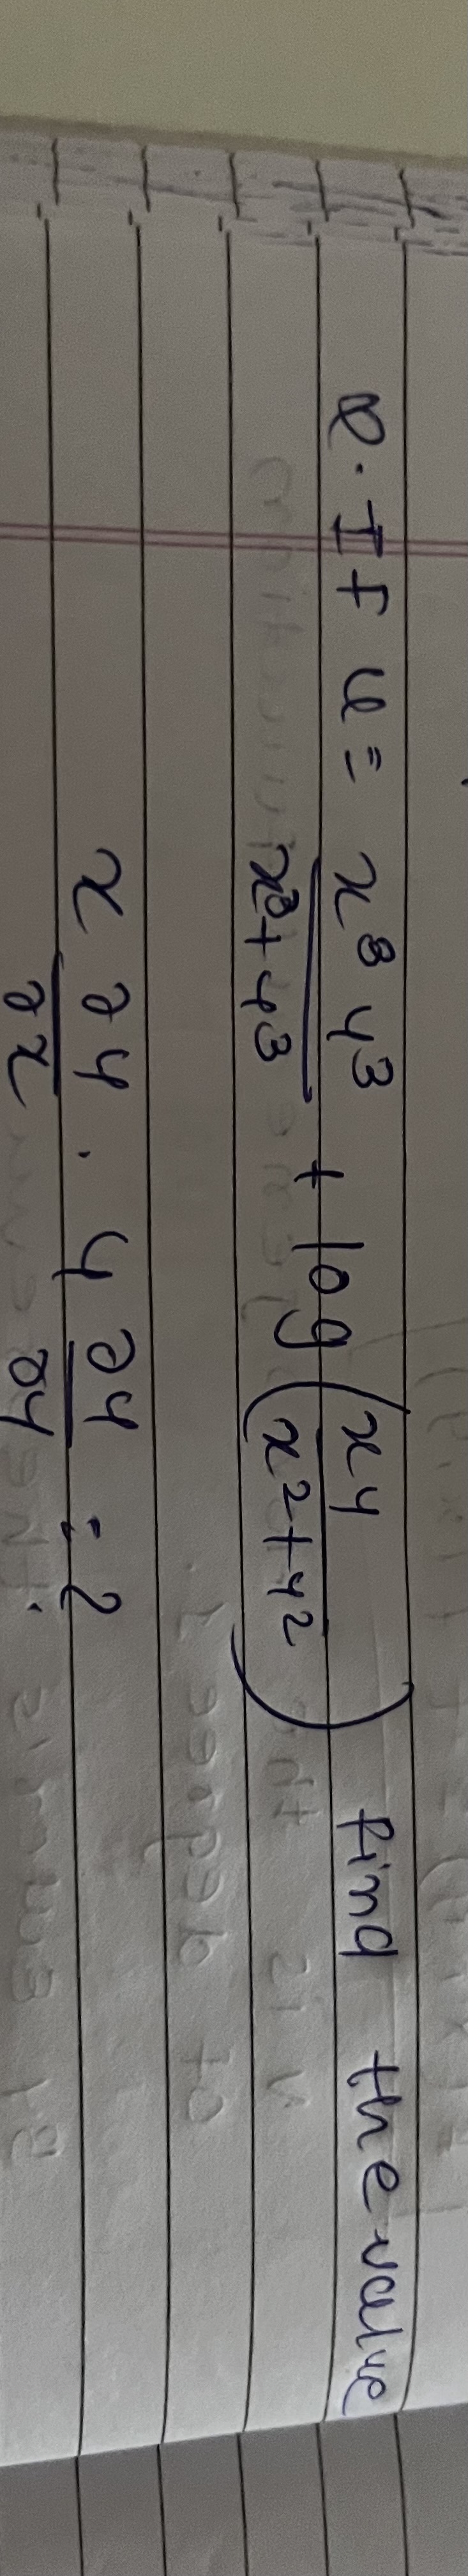 Q. If u = x³ y³ / x³ + y³ + log ( x y / x² + y² ) find the value
x ∂u / ∂x . y ∂u / ∂y = ?